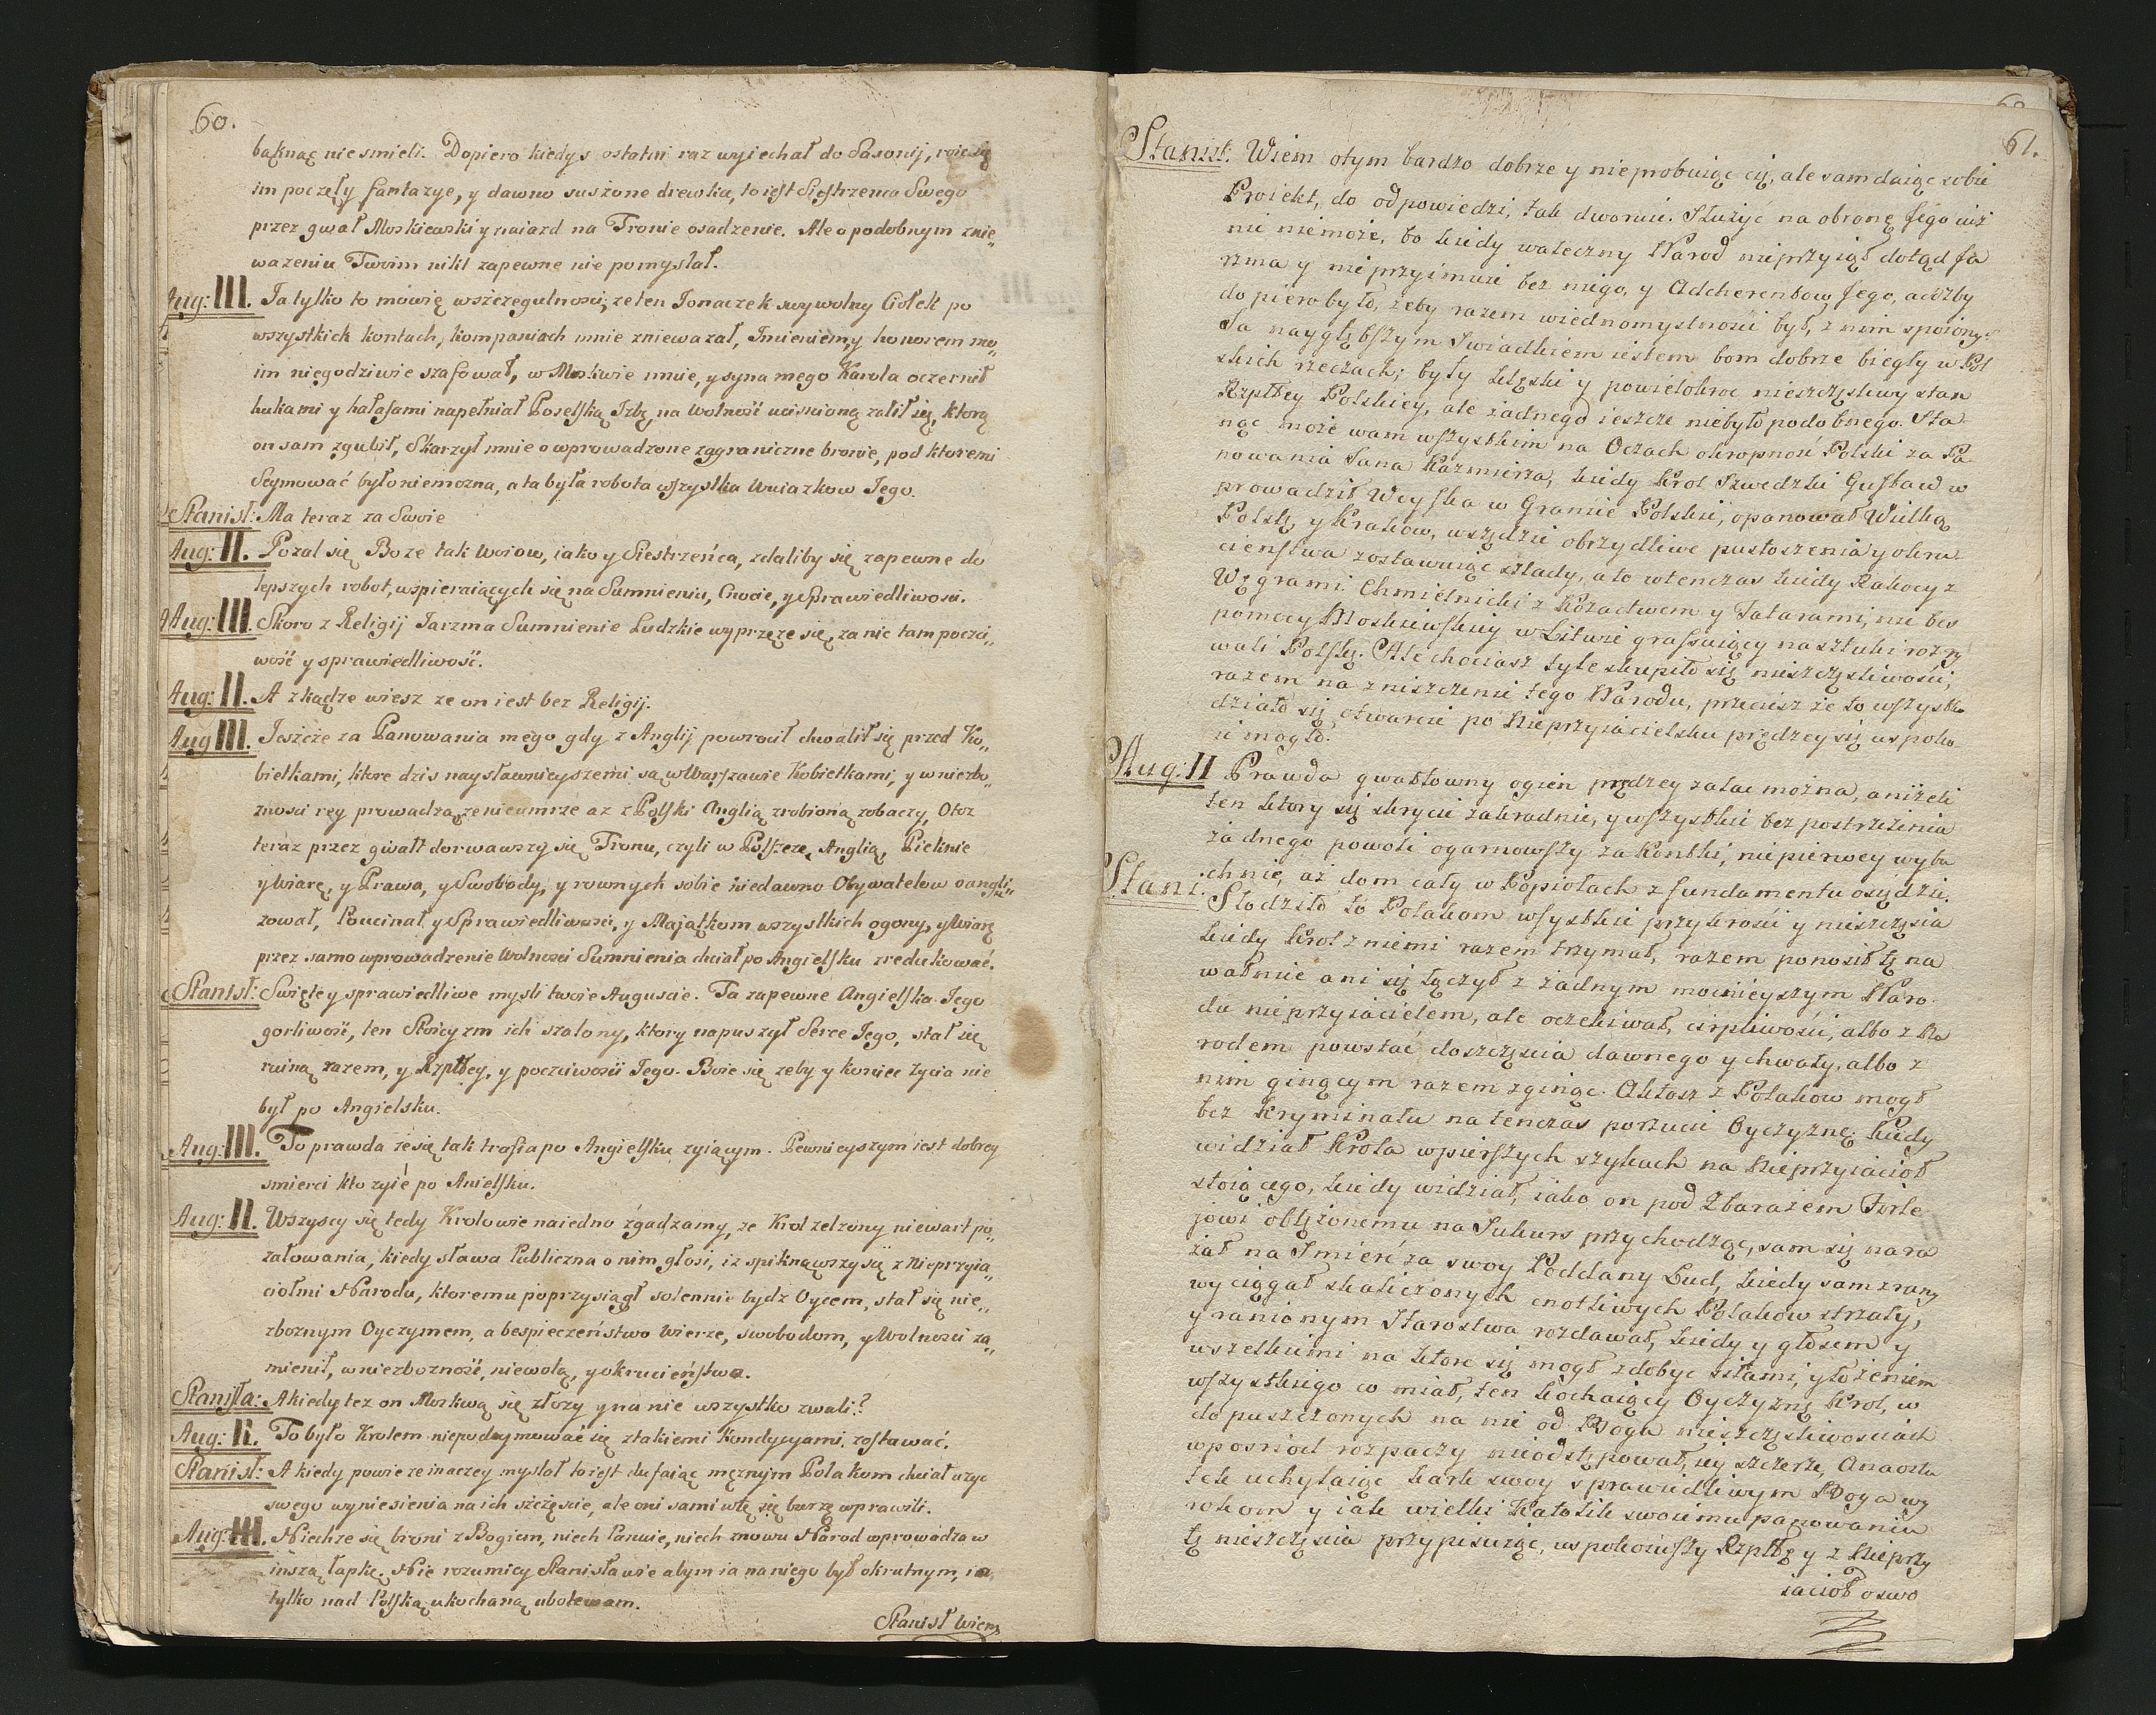 60.
bąknąć nie smieli. Dopiero kiedys ostatni raz wyiechał do Saxonij, roic się
im poczęły fantazye, y dawno suszone drewka, to iest Siestrzenca Swego
przez gwał Moskiewski y naiazd na Tronie osadzenie. Ale o podobnym znie„
wazeniu Twoim nikt zapewne nie pomyslał.
Aug: III. Ia tylko to mówię wszczegulnosci, ze ten Ionaczek swywolny Ciołek po
wszystkich kontach, kompaniach mnie zniewazał, Imieniem, y honorem mo„
im niegodziwie szafował, w Moskwie mnie, y syna mego Karola oczernił
hukami y hałasami napełniał Poselską Izbę, na wolność ucisnioną zalił się, ktorą
on sam zgubił, Skarzył mnie o wprowadzone zagraniczne bronie, pod ktoremi
Seymować było niemozna, a ta była robota wszystka Wuiazkow Iego.
Stanisł: Ma teraz za Swoie
Aug: II. Pozal się Boze tak Woiow, iako y Siestrzeńca, zdaliby się zapewne do
lepszych robot, wspieraiących się na Sumnieniu, Cnocie, y Sprawiedliwosci.
Aug: III. Skoro z Religij Iarzma Sumnienie Ludzkie wyprzęze się, za nic tam poczci„
wość y sprawiedliwość.
Aug: II. A zkądze wiesz ze on iest bez Religij.
Aug III. Ieszcze za Panowania mego gdy z Anglij powrocił chwalił się przed Ko„
bietkami, ktore dzis naysławnieyszemi są w Warszawie Kobietkami, y w niezbo„
znosci rey prowadzą, ze nieumrze az z Polski Anglią zrobioną zobaczy, Otoz
teraz przez gwałt dorwawszy się Tronu, czyli w Polszcze, Anglią, Pieknie
y wiarę, y Prawa, y Swobody, y rownych sobie niedawno Obywatelow oangli„
zował, Poucinał y Sprawiedliwosci, y Maiątkom wszystkich ogony, y Wiarę
przez samo wprowadzenie Wolnosci Sumnienia chciał po Angielsku zredukować.
Stanisł: Swięte y sprawiedliwe mysli twoie Auguscie. Ta zapewne Angielska Iego
gorliwość, ten Stoicyzm ich szalony, ktory napuszył Serce Iego, stał się
ruiną razem, y Rzpltey, y poczciwosci Iego. Boie się zeby y koniec zycia nie
był po Angielsku.
Aug: III. To prawda ze się tak trafia po Angielsku zyiącym. Pewnieyszym iest dobrey
smierci kto zyie po Anielsku.
Aug: II. Wszyscy się tedy Krolowie na iedno zgadzamy, ze Krol zelzony niewart po„
załowania, kiedy sława Publiczna o nim głosi, iz spiknąwszy się z Nieprzyia„
ciołmi Narodu, ktoremu poprzysiągł solennie bydz Oycem, stał się nie„
zboznym Oyczymem, a bespieczeństwo Wierze, swobodom, y Wolnosci za„
mienił, w niezbozność, niewolą, y okrucieństwo.
Stanisła: A kiedy tez on Moskwą się złozy y na nie wszystko zwali?
Aug: II. To było Krolem niepodeymować się z takiemi Kondycyami, zostawać.
Stanisł: A kiedy powie ze inaczey myslał to iest dufaiąc męznym Polakom chciał uzyc
swego wyniesienia na ich szczęscie, ale oni sami w tę się burzę wprawili.
Aug: III. Niechze się broni z Bogiem, niech Panuie, niech znowu Narod wprowadza w
inszą łapkę. Nie rozumiey Stanisławie abym ia na niego był okrutnym, ia
tylko nad Polską ukochaną ubolewam.
Stanisł Wiem
61.
Stanisł. Wiem o tym bardzo dobrze y nieprobuiąc cię, ale sam daiąc sobie
Proiekt, do odpowiedzi, tak dwornie. Służyć na obronę Jego iuż
nic niemoże, bo kiedy waleczny Narod nieprzyiął dotąd Ja
rzma y nieprzyimuie bez niego, y Adcherentow Jego, acożby
dopiero było, żeby razem wiednomyslności był, z nim spoiony.
Ja naygłębszym Swiadkiem iestem bom dobrze biegły w Pol
skich rzeczach; były klęski y powielokroc nieszczęsliwy stan
Rzpltey Polskiey, ale żadnego ieszcze niebyło podobnego. Sta
nąc może wam wszystkim na Oczach okropność Polski za Pa
nowania Jana Kazmirza, kiedy Krol Szwedzki Gustaw w
prowadził Woyska w Granice Polskie, opanował Wielką
Polskę y Krakow, wszędzie obrzydliwe pustoszenia y okru
cieństwa zostawuiąc szlady, a to wtenczas kiedy Rakocy z
Węgrami Chmielnicki z Kozactwem y Tatarami, nie bez
pomocy Moskiewskiey w Litwie grassuiącey na sztuki rozry
wali Polskę. Ale chociasz tyle skupiło się nieszczęsliwości,
razem na zniszczenie tego Narodu, przeciesz że to wszystko
działo się otwarcie po Nieprzyiacielsku prędzey się uspoko
ić mogło.
Aug: II Prawda gwałtowny ogień prędzey zalac można, aniżeli
ten ktory się skrycie zakradnie, y wszystkie bez postrzeżenia
żadnego powoli ogarnowszy za Kontki, niepierwey wybu
chnie, aż dom cały w Popiołach z fundamentu osiędzie.
Stani: Słodziło to Polakom wszystkie przykrości y nieszczęscia
kiedy Krol z niemi razem trzymał, razem ponosił tę na
wałnicę ani się łączył z żadnym mocnieyszym Naro
du nieprzyiacielem, ale oczekiwał, cirpliwości, albo z Na
rodem powstać doszczęscia dawnego y chwały, albo z
nim ginącym razem zginąc. A ktosz z Polakow mogł
bez kryminału na tenczas porzucic Oyczyznę; kiedy
widział Krola wpierszych szykach na Nieprzyiacioł
stoiącego, kiedy widział, iako on pod Zbarażem Firle
jowi oblężonemu na Sukurs przychodząc, sam się nara
żał na Smierć za swoy Poddany Lud, kiedy sam z rany
wyciągał skaliczonych cnotliwych Polakow strzały,
y ranionym Starostwa rozdawał, kiedy y głosem y
wszelkiemi na ktore się mogł zdobyc siłami, y łożeniem
wszystkiego co miał, ten kochaiący Oyczyznę Krol, w
dopuszczonych na nie od Boga nieszczęsliwosciach
wposriod rozpaczy nieodstępował, iey szczerze, Anaosta
tek uchylaiąc kark swoy sprawiedliwym Boga wy
rokom y iak wielki Katolik swoiemu panowaniu
tę nieszczęscia przypisuiąc, uspokoiwszy Rzpltę y z Nieprzy
iacioł oswo